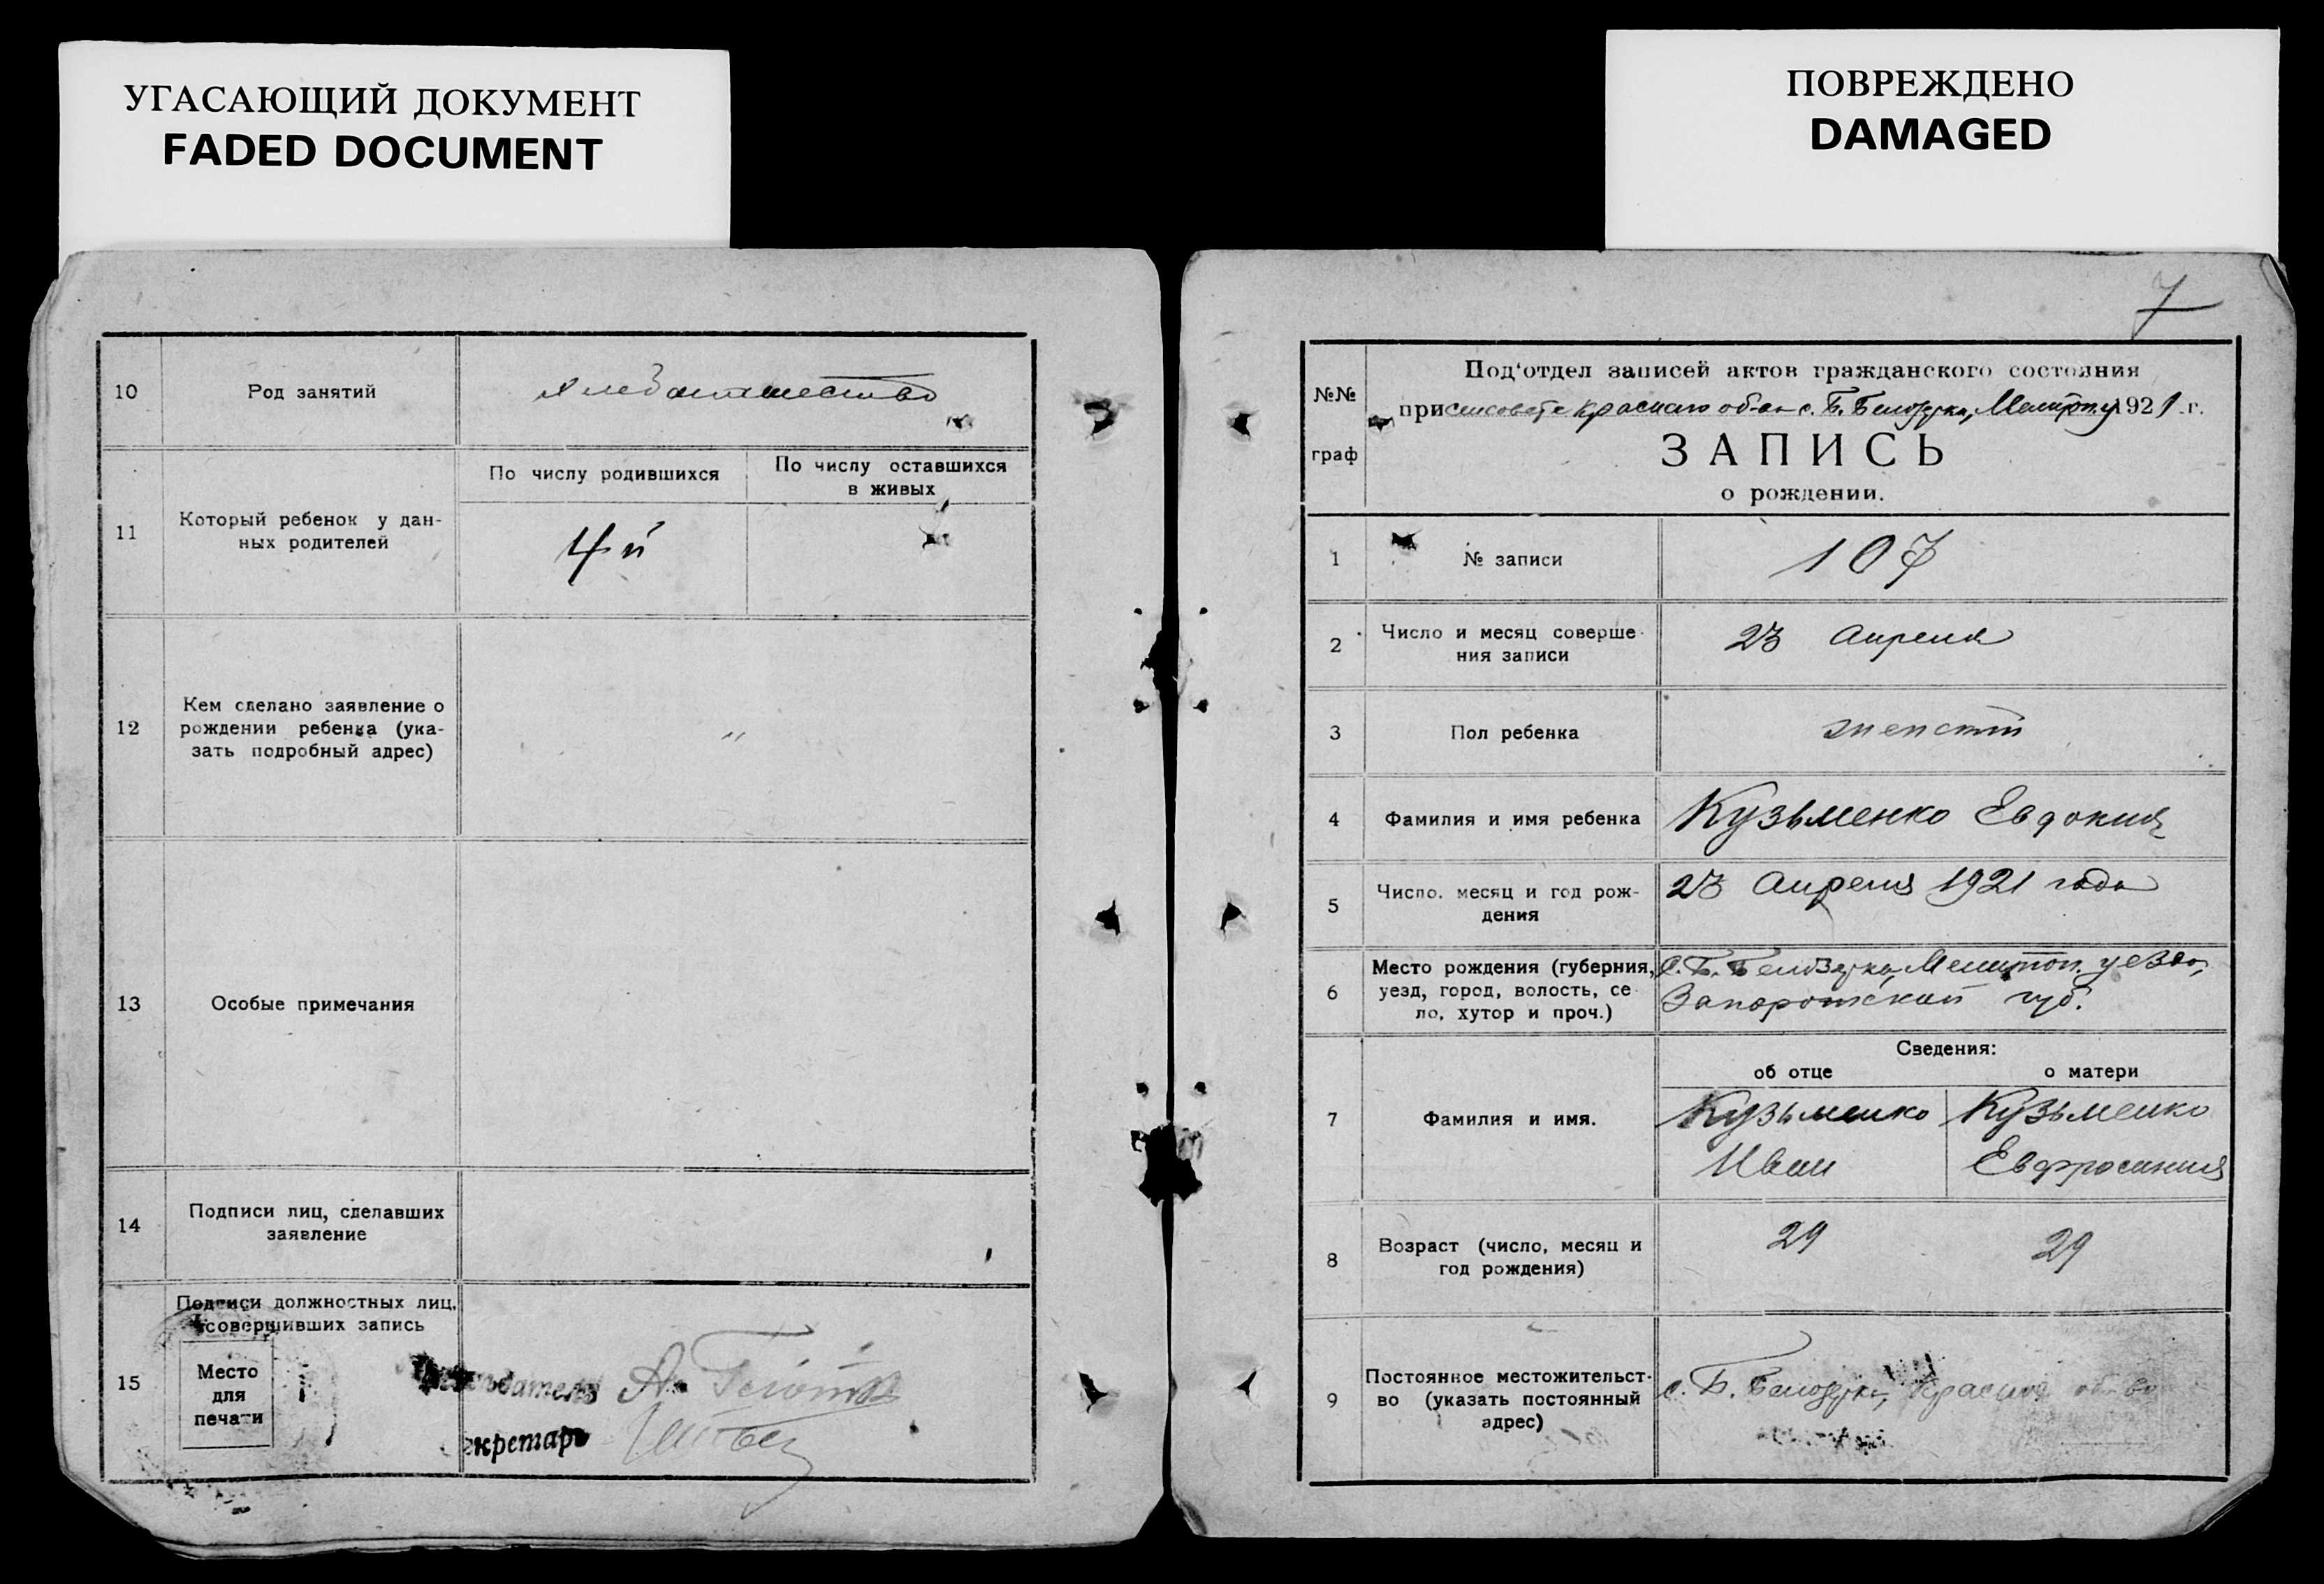 УГАСАЮЩИЙ ДОКУМЕНТ
FADED DOCUMENT
ПОВРЕЖДЕНО
DAMAGED
10
Род занятий
хлебопашество
11
Который ребенок у дан-
ных родителей
По числу родившихся
По числу оставшихся
в живых
4й
12
Кем сделано заявление о
рождении ребенка (ука-
зать подробный адрес)
"
13
Особые примечания
14
Подписи лиц, сделавших
заявление
15
Подписи должностных лиц,
совершивших запись
Место
для
печати
7
№№
граф
Под'отдел записей актов гражданского состояния
при с. Б. Белозерка, 1921 г.
ЗАПИСЬ
о рождении.
1
№ записи
107
2
Число и месяц соверше-
ния записи
23 Апреля
3
Пол ребенка
женский
4
Фамилия и имя ребенка
Кузьменко Евдокия
5
Число, месяц и год рож-
дения
23 Апреля 1921 года
6
Место рождения (губерния,
уезд, город, волость, се-
ло, хутор и проч.)
с. Б. Белозерка, Мелитоп. уезда,
Запорожской губ.
Сведения:
об отце
о матери
7
Фамилия и имя.
Кузьменко
Иван
Кузьменко
Евфросиния
8
Возраст (число, месяц и
год рождения)
29
29
9
Постоянное местожительст-
во (указать постоянный
адрес)
с. Б. Белозерка,